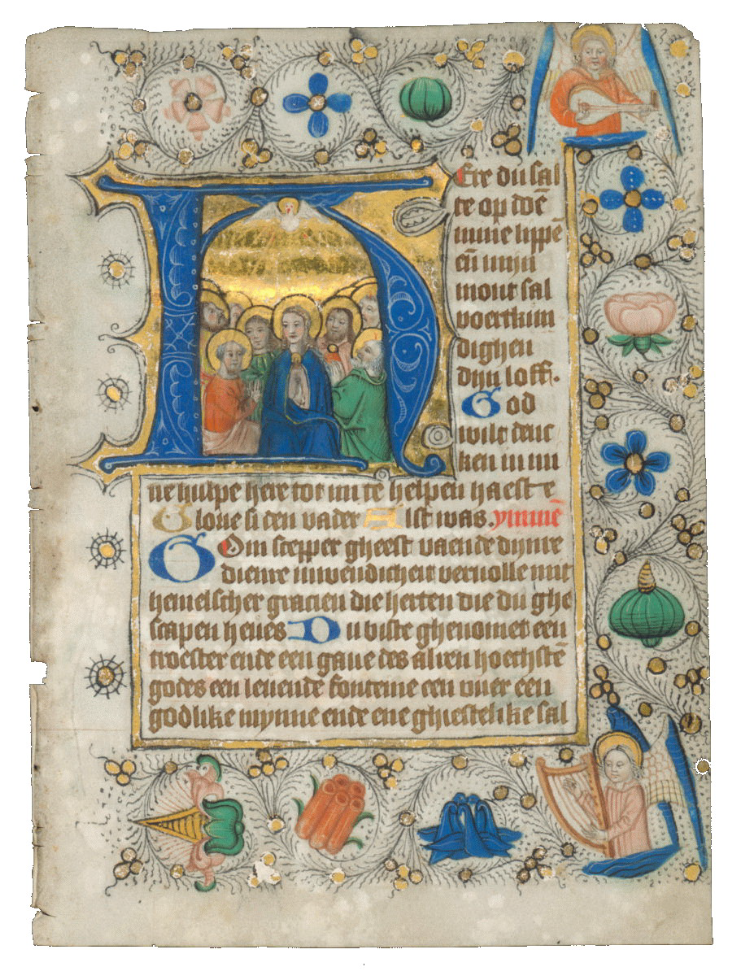 Ere du sal
te op doē
mine lippē
eñ mijn
mont sal
voertkun
dighen
dijn loff.
God
wilt denc
ken in mi
ne hulpe here tot mi te helpen haest e
Glorie si den vader Alst was. ymmē
Com scepper gheest vande dinre
dienre inwendicheit vervolle mit
hemelscher gracien die herten die du ghe
scapen heves Du biste ghenomet een
troester ende een gave des alren hoechstē
godes een levende fonteine een vuer een
godlike mynne ende ene ghiestelike sal